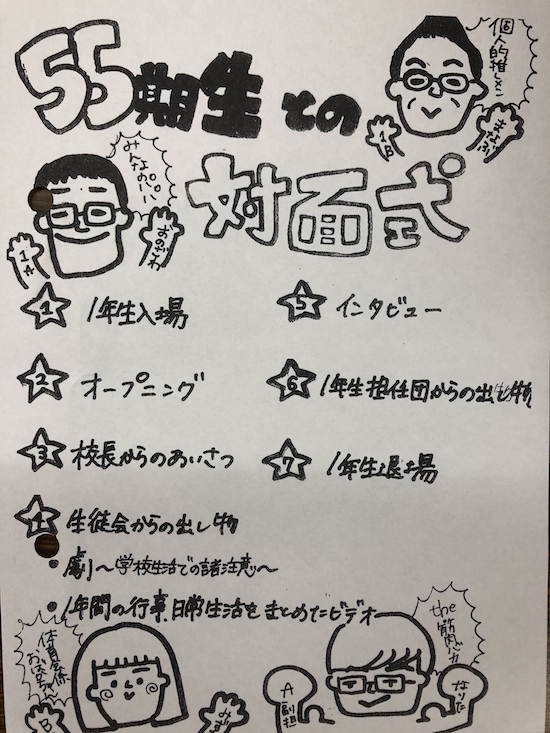 55期生との
対面式
個人的推しメン
まなぶ
1B
みんなのパパ
おのざわ
1A
1 1年生入場
2 オープニング
3 校長からのあいさつ
4 生徒会からの出し物
• 劇〜学校生活での諸注意〜
• 1年間の行事、日常生活をまとめたビデオ
5 インタビュー
6 1年生担任団からの出し物
7 1年生退場
体育会系
おばちゃん
B
みず
the
筋肉バカ
A
副担